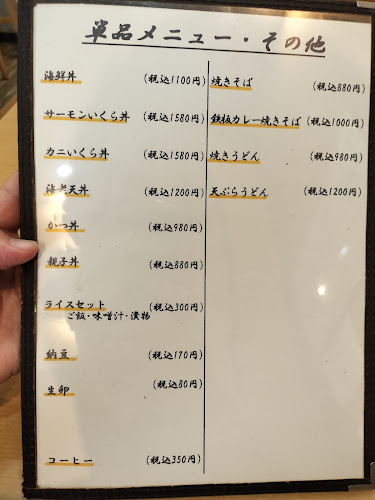 単品メニュー・その他
海鮮丼 (税込1100円)
サーモンいくら丼 (税込1580円)
カニいくら丼 (税込1580円)
海老天丼 (税込1200円)
かつ丼 (税込980円)
親子丼 (税込880円)
ライスセット (税込300円)
ご飯・味噌汁・漬物
納豆 (税込170円)
生卵 (税込80円)
コーヒー (税込350円)
焼きそば (税込880円)
鉄板カレー焼きそば (税込1000円)
焼きうどん (税込980円)
天ぷらうどん (税込1200円)